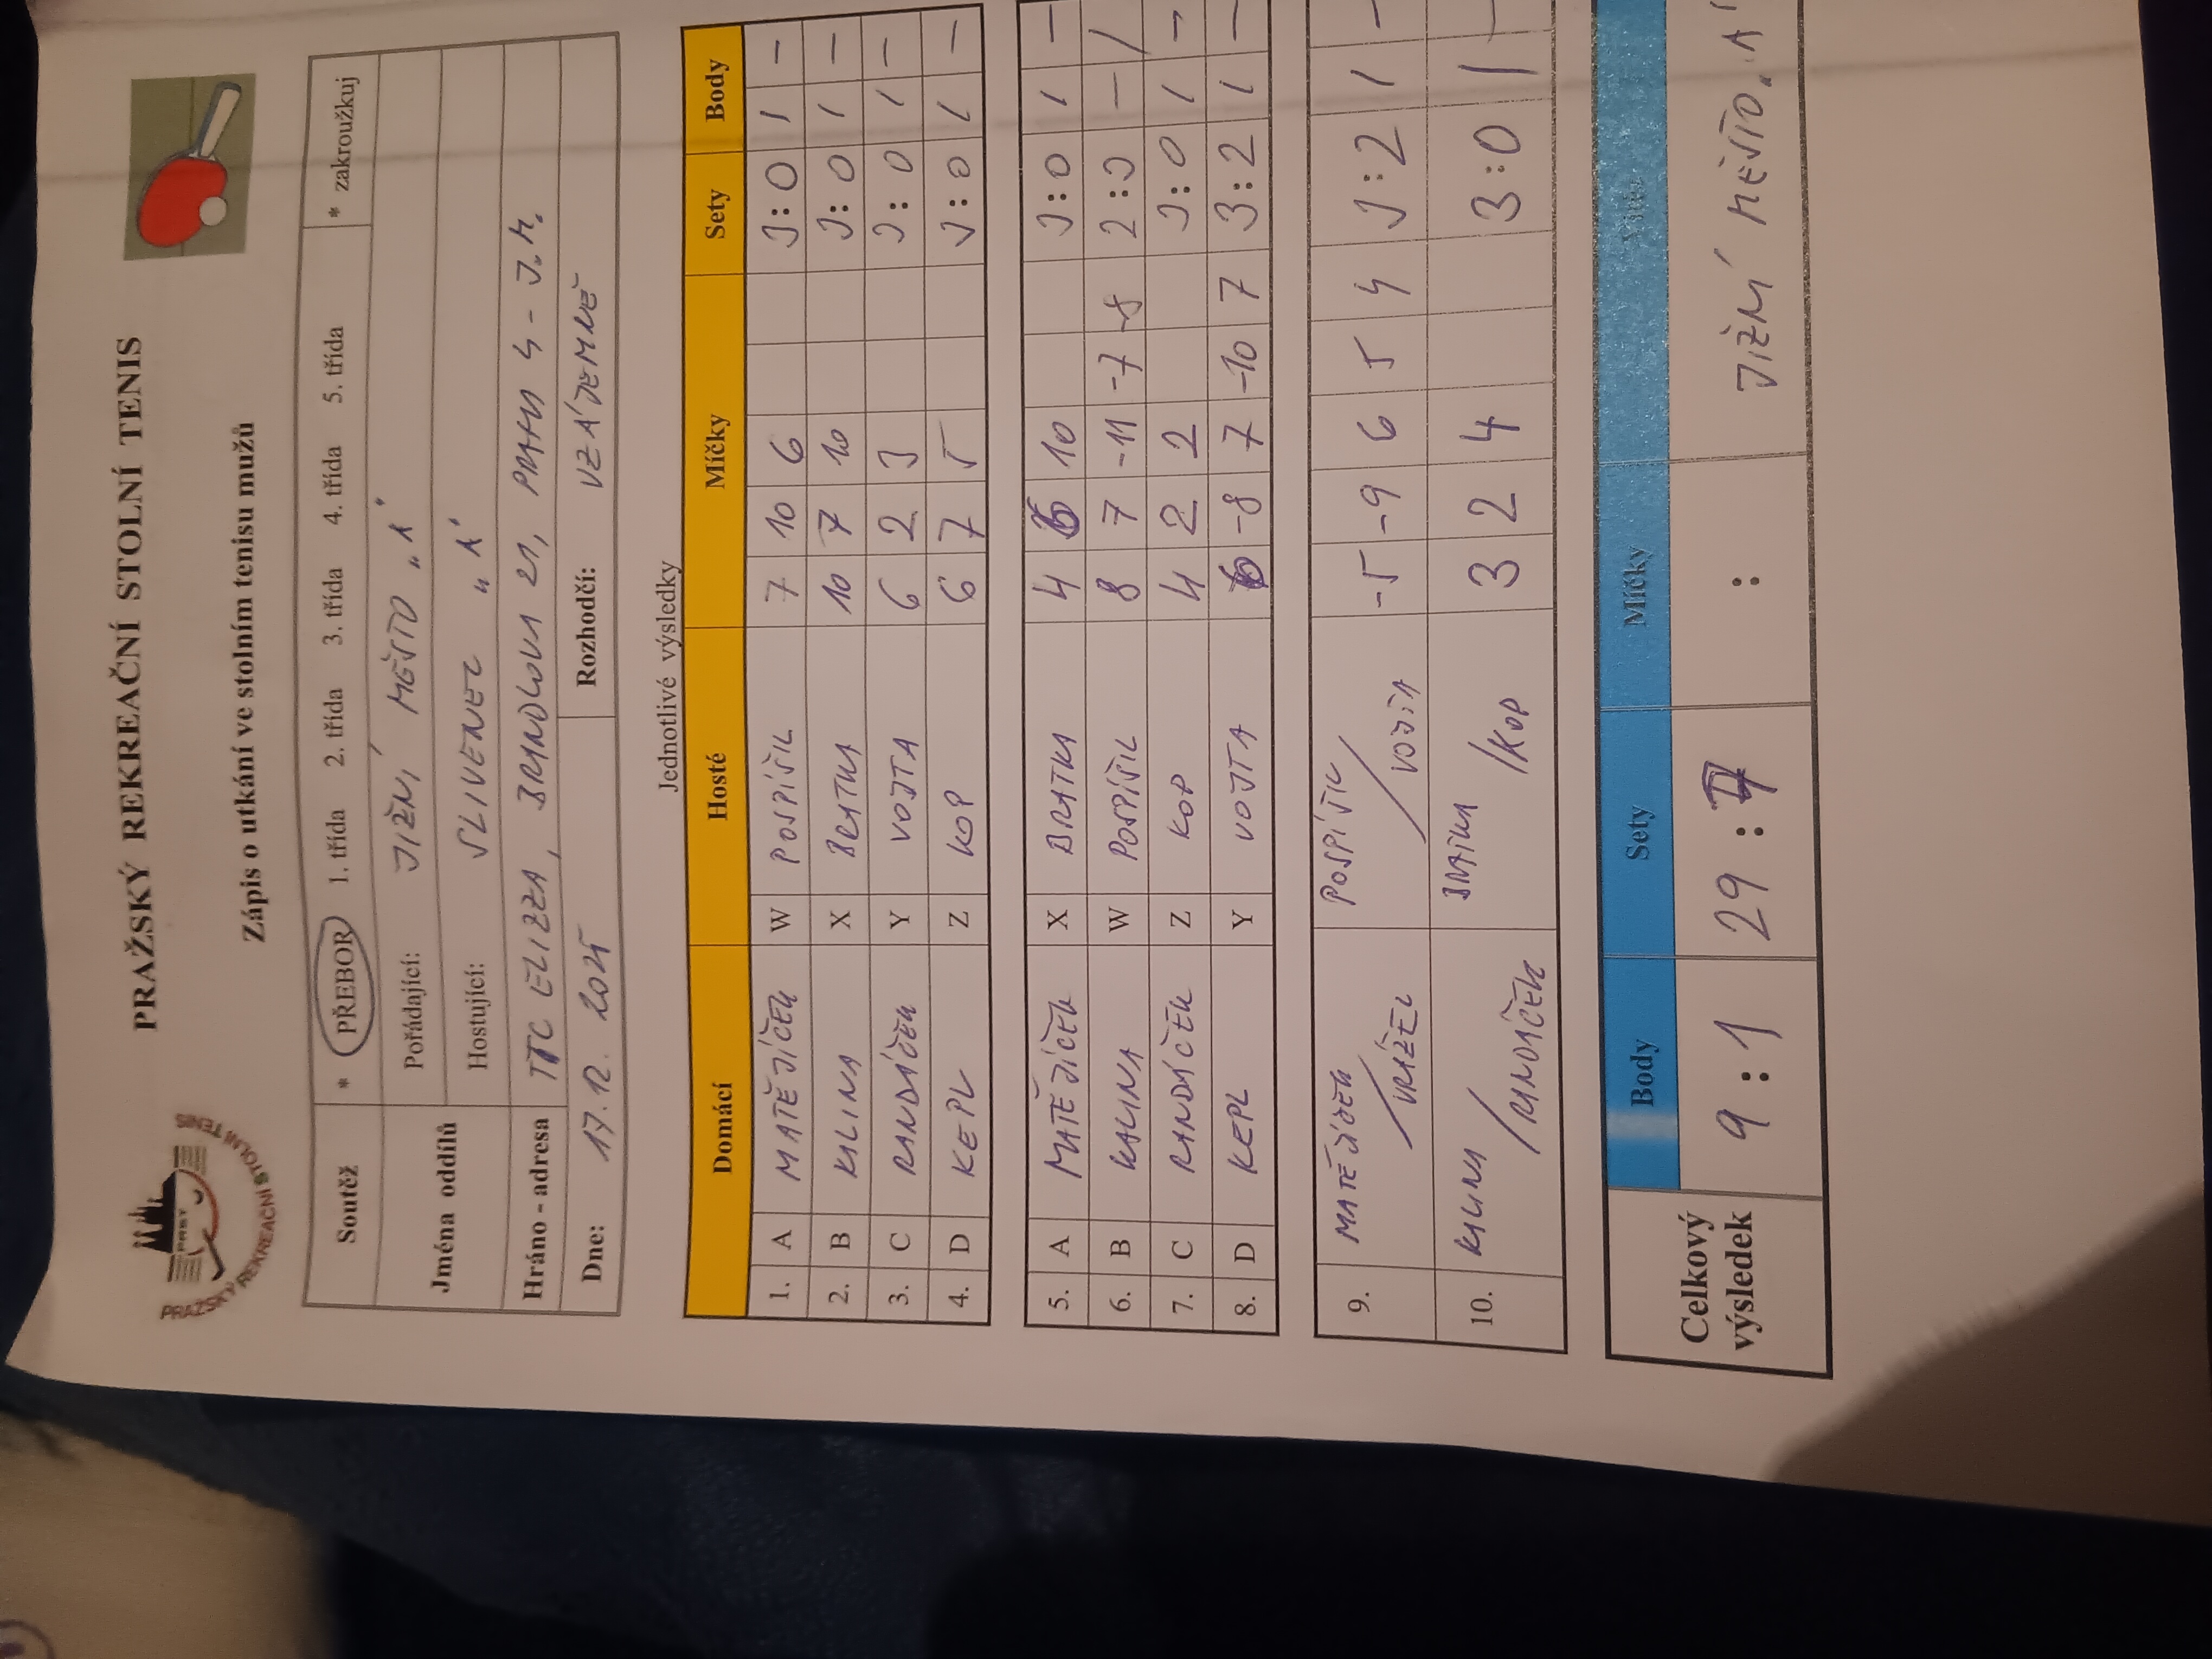 PRAŽSKÝ REKREAČNÍ STOLNÍ TENIS
PRAŽSKÝ REKREAČNÍ STOLNÍ TENIS
Zápis o utkání ve stolním tenisu mužů
Soutěž * PŘEBOR 1. třída 2. třída 3. třída 4. třída 5. třída * zakroužkuj
Jména oddílů Pořádající: JIŽNÍ MĚSTO "A"
Hostující: SLIVENEC "A"
Hráno - adresa TTC ELIZZA, BRANDLOVA 21, PRAHA 4 - J.M.
Dne: 17.12. 2025 Rozhodčí: VZÁJEMNĚ
Jednotlivé výsledky
Domácí Hosté Míčky Sety Body
1. A MATĚJÍČEK W POSPÍŠIL 7 10 6 3:0 1 –
2. B KALINA X BRATKA 10 7 10 3:0 1 –
3. C RANDÁČEK Y VOJTA 6 2 3 3:0 1 –
4. D KEPL Z KOP 6 7 5 3:0 1 –
5. A MATĚJÍČEK X BRATKA 4 6 10 3:0 1 –
6. B KALINA W POSPÍŠIL 8 7 -11 -7 -8 2:3 – 1
7. C RANDÁČEK Z KOP 4 2 2 3:0 1 –
8. D KEPL Y VOJTA 6 -8 7 -10 7 3:2 1 –
9. MATĚJÍČEK / VRÁŽEL POSPÍŠIL / VOJTA -5 -9 6 5 4 3:2 1 –
10. KALINA / RANDÁČEK BRATKA / KOP 3 2 4 3:0 1 –
Celkový výsledek Body Sety Míčky
9:1 29:7 : JIŽNÍ MĚSTO "A"